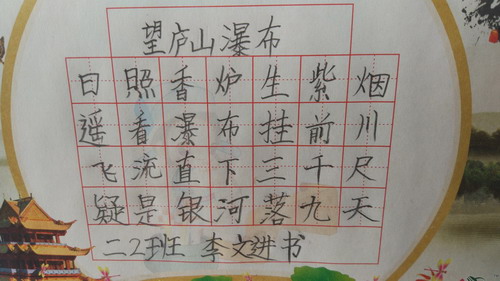 望庐山瀑布
日照香炉生紫烟
遥看瀑布挂前川
飞流直下三千尺
疑是银河落九天
二2班 李文进书